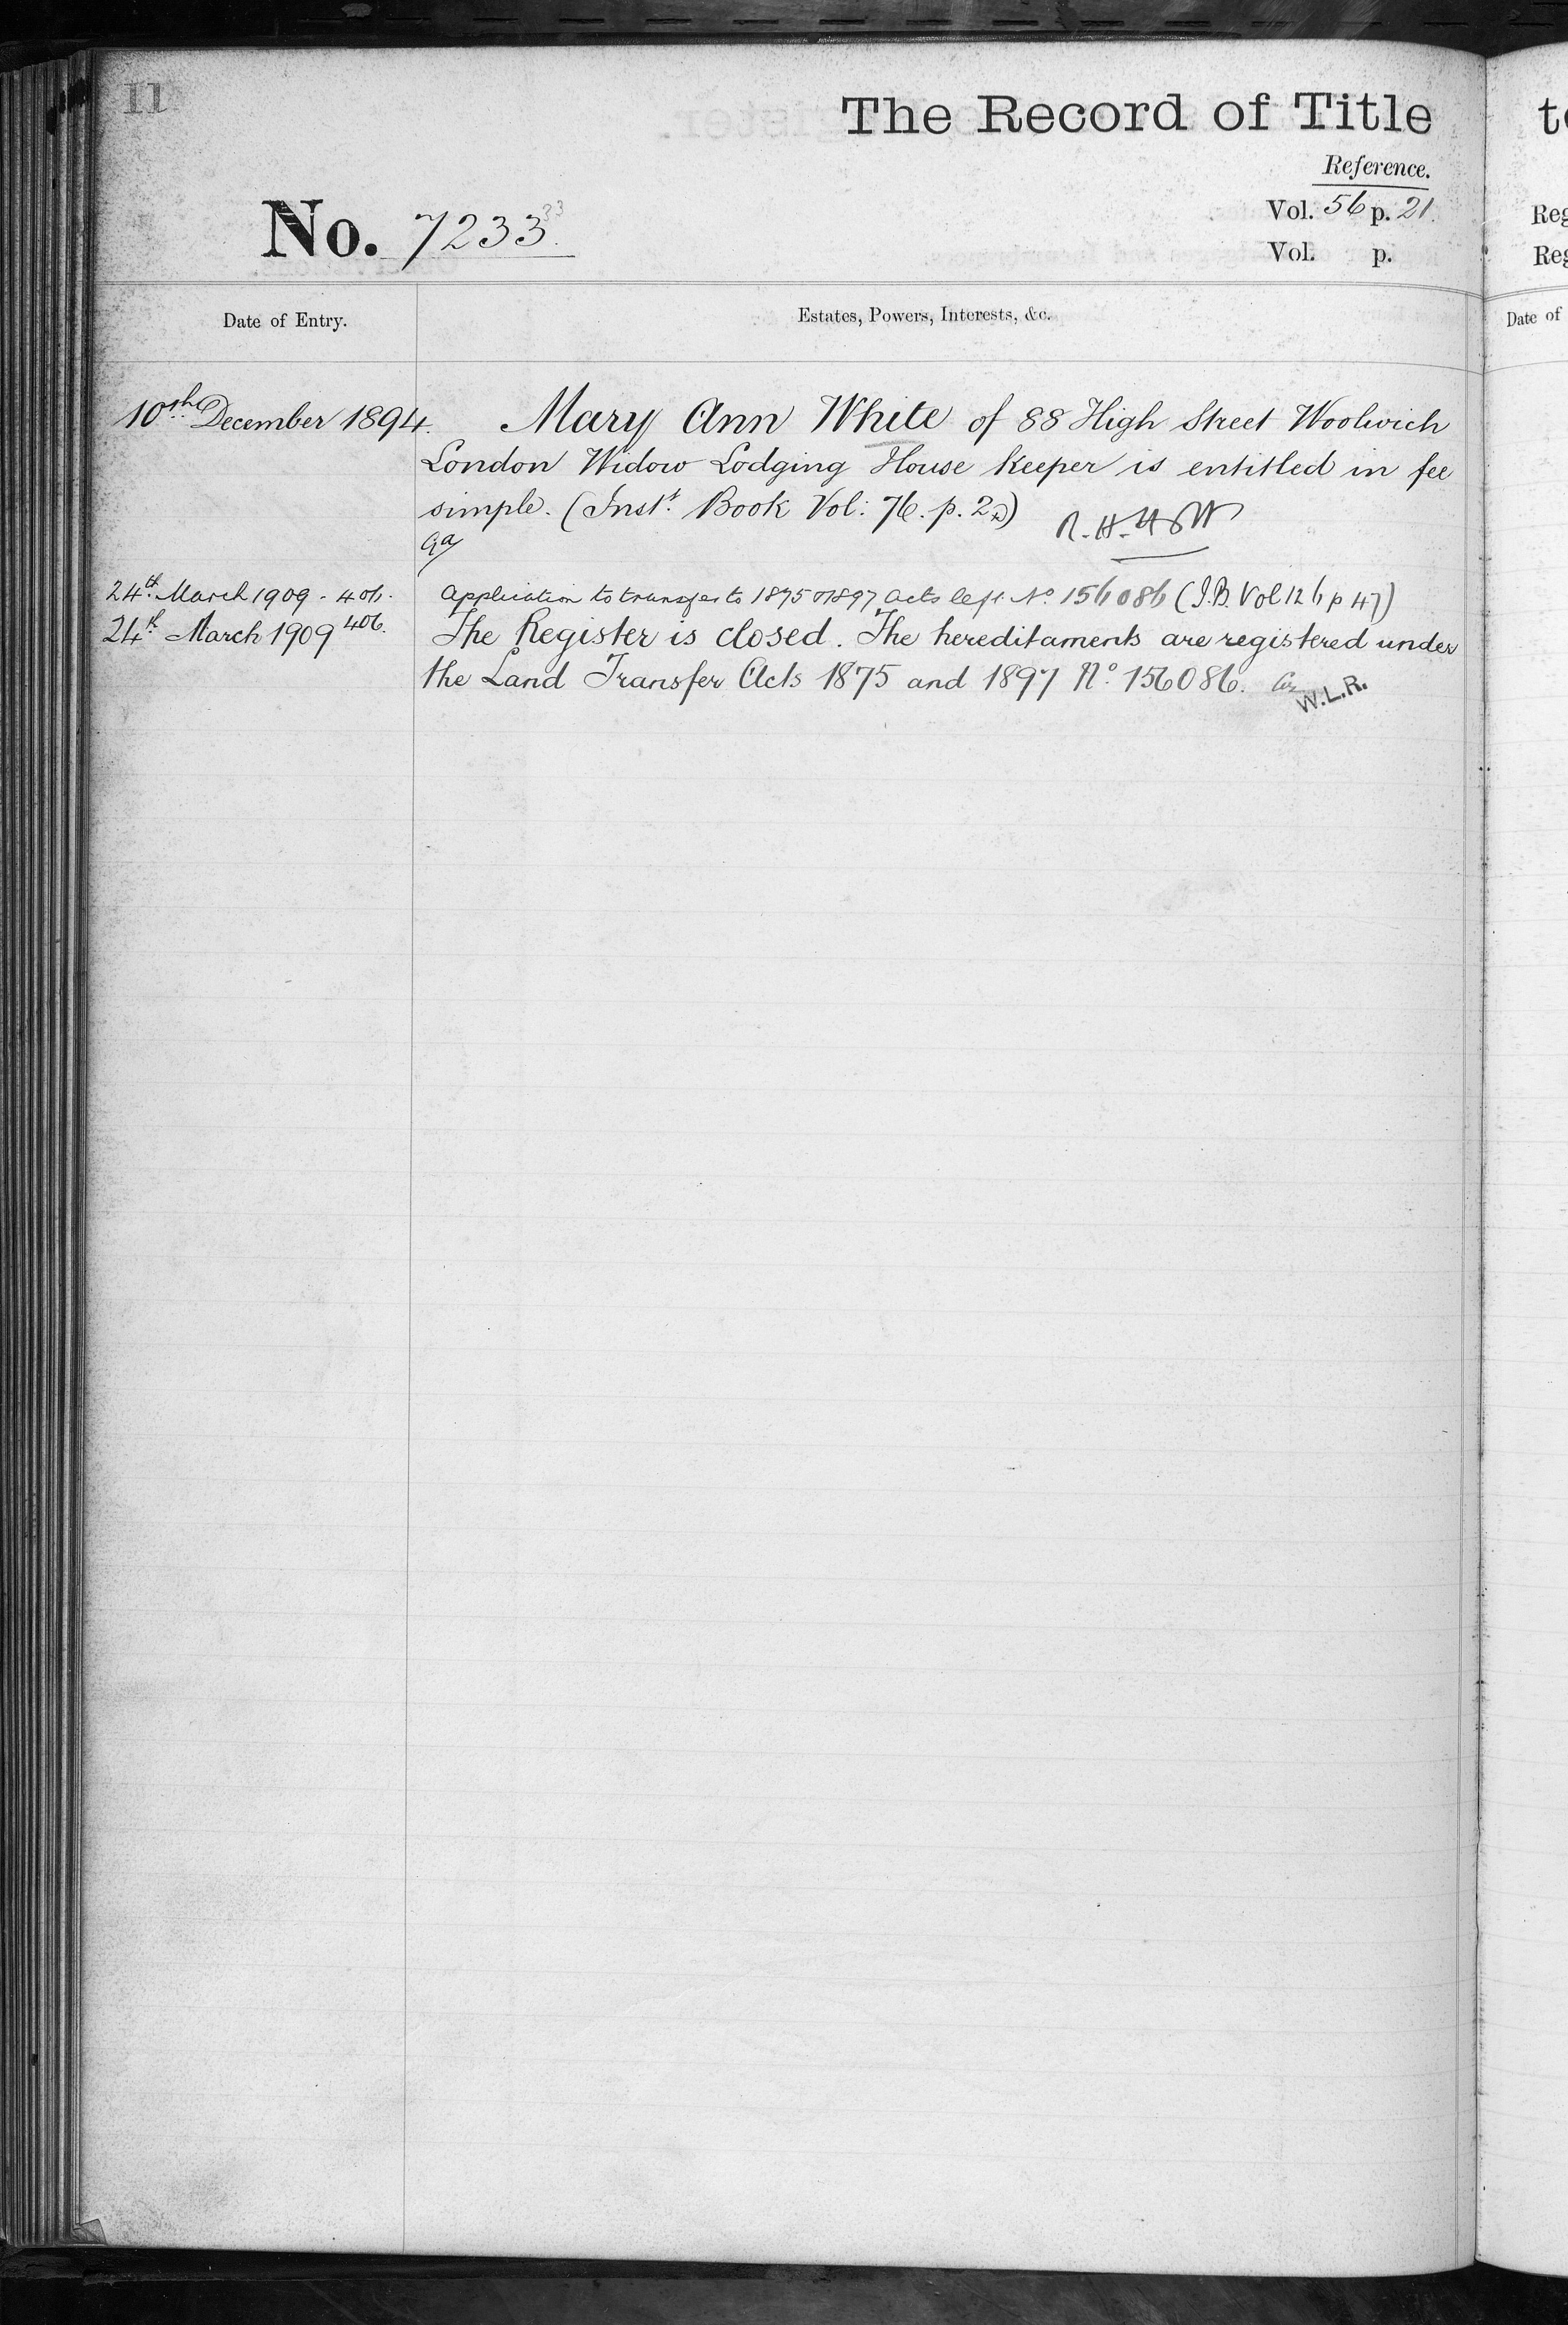 11
The Record of Title
Reference.
No. 7233.
33
Vol. 56 p. 21.
Vol. p.
Date of Entry.
Estates, Powers, Interests, &c.
10th December 1894. Mary Ann White of 88 High Street Woolwich
London Widow Lodging House Keeper is entitled in fee
simple. (Inst. Book Vol: 76. p. 2)
24th March 1909 - 406. Application to transfer to 1875 & 1897 Acts left No. 156086 (I.B. Vol 126 p 47)
24th March 1909 406. The Register is closed. The hereditaments are registered under
the Land Transfer Acts 1875 and 1897 No. 156086.
W.L.R.
Reg
Reg
Date of